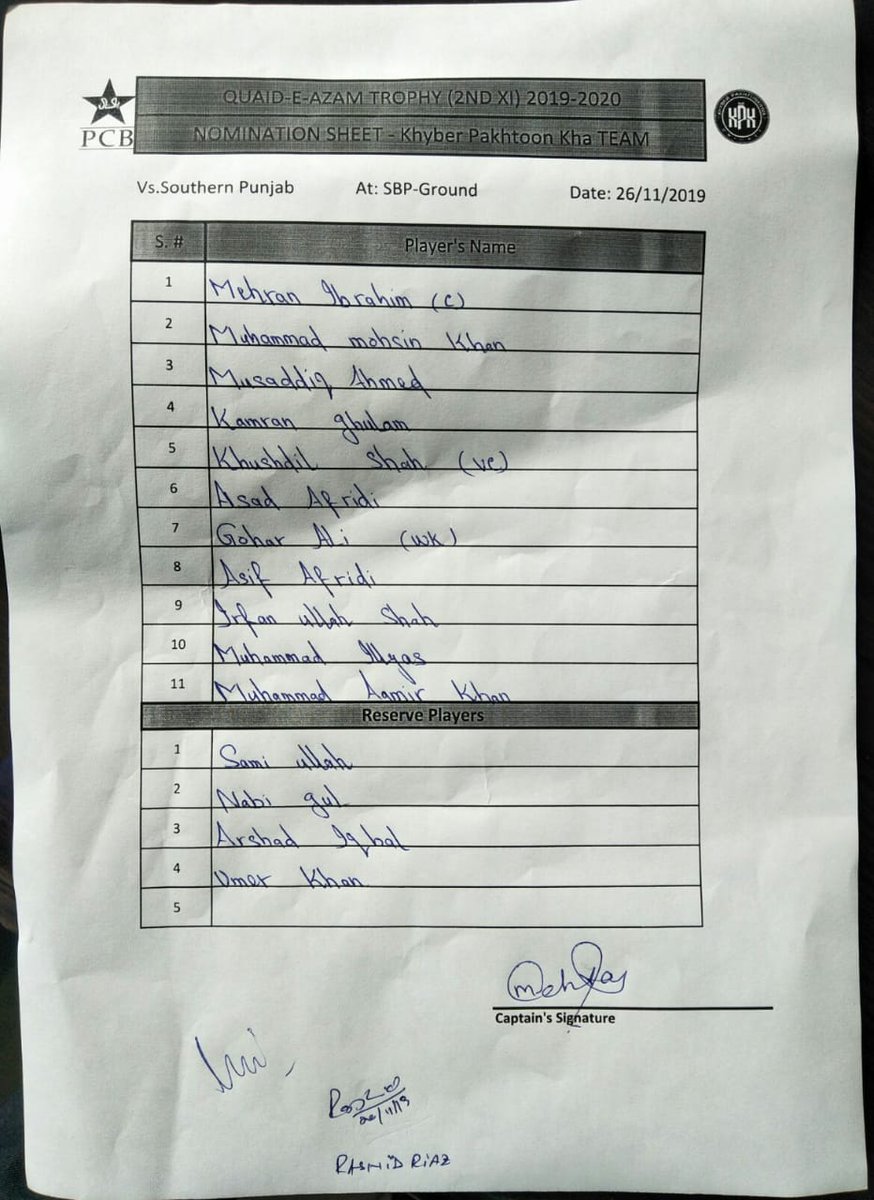 QUAID-E-AZAM TROPHY (2ND XI) 2019-2020
PCB
NOMINATION SHEET - Khyber Pakhtoon Kha TEAM
KPK
Vs.Southern Punjab At: SBP-Ground Date: 26/11/2019
S. # Player's Name
1 Mehran Ibrahim (c)
2 Muhammad mohsin Khan
3 Musaddiq Ahmed
4 Kamran ghulam
5 Khushdil Shah (vc)
6 Asad Afridi
7 Gohar Ali (wk)
8 Asif Afridi
9 Irfan ullah Shah
10 Muhammad Illyas
11 Muhammad Aamir Khan
Reserve Players
1 Sami ullah
2 Nabi gul
3 Arshad Iqbal
4 Umer Khan
5
Captain's Signature
26/11/19
RASHID RIAZ